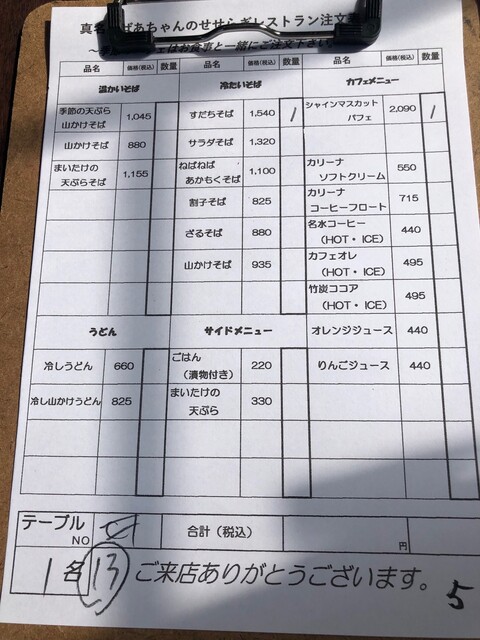 真名 ばあちゃんのせせらぎレストラン注文
はお食事と一緒にご注文下さい
品名 価格(税込) 数量 品名 価格(税込) 数量 品名 価格(税込) 数量
温かいそば 冷たいそば カフェメニュー
季節の天ぷら
山かけそば 1,045 すだちそば 1,540 1 シャインマスカット
パフェ 2,090 1
山かけそば 880 サラダそば 1,320
まいたけの
天ぷらそば 1,155 ねばねば
あかもくそば 1,100 カリーナ
ソフトクリーム 550
割子そば 825 カリーナ
コーヒーフロート 715
ざるそば 880 名水コーヒー
(HOT・ICE) 440
山かけそば 935 カフェオレ
(HOT・ICE) 495
竹炭ココア
(HOT・ICE) 495
うどん サイドメニュー オレンジジュース 440
冷しうどん 660 ごはん
(漬物付き) 220 りんごジュース 440
冷し山かけうどん 825 まいたけの
天ぷら 330
テーブル
NO 合計(税込) 円
1名 13 ご来店ありがとうございます。 5